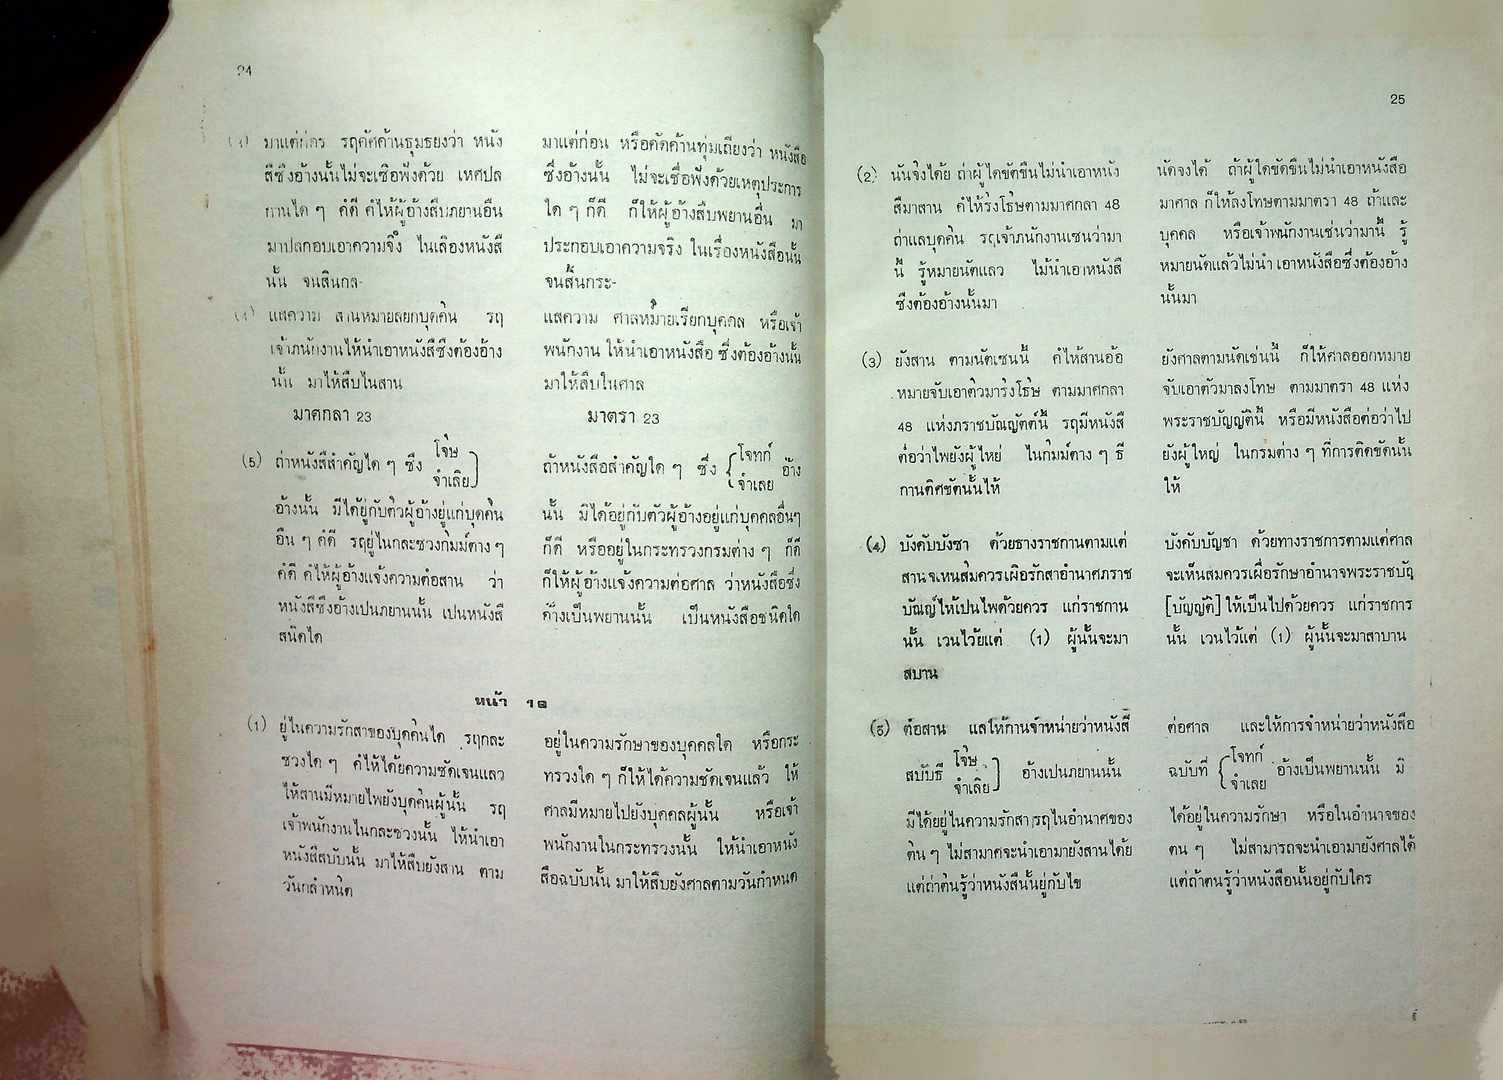 24
มาแต่ก่อร รฤคัศค้านธุมธยงว่า หนัง
สืซึงอ้างนั้นไม่จะเซือฟังค้วย เหศปล
กานใด ๆ ค์ดี ค์ให้ผู้อ้างสืบภยานอืน
มาปลกอบเอาความจึง ในเลืองหนังสื
นั้น จนสืนกล-
แสความ สานหมายลยกบุคคืน รฤ
เจ้าภนักงานให้นำเอาหนังสืซึงต้องอ้าง
นั้น มาให้สืบในสาน
มาศกลา 23
(5) ถ่าหนังสืสำคัญใด ๆ ซึง โจ้ษ
จำเลีย
อ้างนั้น มีได้ยู่กับตัวผู้อ้างยู่แก่บุคคืน
อืน ๆ ค์ดี รฤยู่ในกละซวงกืมม์ต่าง ๆ
ค์ดี ค์ให้ผู้อ้างแจ้งความต่อสาน ว่า
หนังสืซึงอ้างเปนภยานนั้น เปนหนังสื
สนืดใด
มาแต่ก่อน หรือคัดค้านทุ่มเถียงว่า หนังสือ
ซึ่งอ้างนั้น ไม่จะเชื่อฟังด้วยเหตุประการ
ใด ๆ ก็ดี ก็ให้ผู้อ้างสืบพยานอื่น มา
ประกอบเอาความจริง ในเรื่องหนังสือนั้น
จนสิ้นกระ-
แสความ ศาลหมายเรียกบุคคล หรือเจ้า
พนักงาน ให้นำเอาหนังสือ ซึ่งต้องอ้างนั้น
มาให้สืบในศาล
มาตรา 23
ถ้าหนังสือสำคัญใด ๆ ซึ่ง โจทก์
จำเลย อ้าง
นั้น มิได้อยู่กับตัวผู้อ้างอยู่แก่บุคคลอื่นๆ
ก็ดี หรืออยู่ในกระทรวงกรมต่าง ๆ ก็ดี
ก็ให้ผู้อ้างแจ้งความต่อศาล ว่าหนังสือซึ่ง
อ้างเป็นพยานนั้น เป็นหนังสือชนิดใด
หน้า ๑๑
(1) ยู่ในความรักสาของบุคคืนใด รฤกละ
ซวงใด ๆ ค์ให้ได้ยความซัดเจนแลว
ให้สานมีหมายไพยังบุคคืนผู้นั้น รฤ
เจ้าพนักงานในกละซวงนั้น ให้นำเอา
หนังสืสบับนั้น มาให้สืบยังสาน ตาม
วันกลำหนืด
อยู่ในความรักษาของบุคคลใด หรือกระ
ทรวงใด ๆ ก็ให้ได้ความชัดเจนแล้ว ให้
ศาลมีหมายไปยังบุคคลผู้นั้น หรือเจ้า
พนักงานในกระทรวงนั้น ให้นำเอาหนัง
สือฉบับนั้น มาให้สืบยังศาลตามวันกำหนด
25
(2) นันจึงได้ย ถ่าผู้ใดขัดขืนไม่นำเอาหนัง
สืมาสาน ค์ให้ร่งโธ้ษตามมาศกลา 48
ถ่าแลบุคคืน รฤเจ้าภนักงานเซนว่ามา
นี้ รู้หมายนัดแลว ไม้นำเอาหนังสื
ซึงต้องอ้างนั้นมา
(3) ยังสาน ตามนัดเซนนี้ ค์ให้สานอ้อ
หมายจับเอาตัวมาร่งโธ้ษ ตามมาศกลา
48 แห่งภราชบัณญัตต์นี้ รฤมีหนังสื
ต่อว่าไพยังผู้ใหย่ ในกืมม์ต่าง ๆ ธี
กานติศขัดนั้นให้
(4) บังคับบังซา ด้วยธางราชกานตามแต่
สานจะเหนสมควรเผือรักสาอำนาศภราช
บัณญ์ให้เปนไพด้วยควร แก่ราชกาน
นั้น เวนไว้ยแต่ (1) ผู้นั้นจะมา
สบาน
(5) ต่อสาน แลให้กานจำหน่ายว่าหนังสื
สบับธี โจ้ษ
จำเลีย อ้างเปนภยานนั้น
มีได้ยยู่ในความรักสา รฤในอำนาศของ
ตืน ๆ ไม่สามาศจะนำเอามายังสานได้ย
แต่ถ่าตืนรู้ว่าหนังสืนั้นยู่กับไข
นัดจงได้ ถ้าผู้ใดขัดขืนไม่นำเอาหนังสือ
มาศาล ก็ให้ลงโทษตามมาตรา 48 ถ้าและ
บุคคล หรือเจ้าพนักงานเช่นว่ามานี้ รู้
หมายนัดแล้วไม่นำ เอาหนังสือซึ่งต้องอ้าง
นั้นมา
ยังศาลตามนัดเช่นนี้ ก็ให้ศาลออกหมาย
จับเอาตัวมาลงโทษ ตามมาตรา 48 แห่ง
พระราชบัญญัตินี้ หรือมีหนังสือต่อว่าไป
ยังผู้ใหญ่ ในกรมต่าง ๆ ที่การติดขัดนั้น
ให้
บังคับบัญชา ด้วยทางราชการตามแต่ศาล
จะเห็นสมควรเผื่อรักษาอำนาจพระราชบัญ
[บัญญัติ] ให้เป็นไปด้วยควร แก่ราชการ
นั้น เวนไว้แต่ (1) ผู้นั้นจะมาสาบาน
ต่อศาล และให้การจำหน่ายว่าหนังสือ
ฉบับที่ โจทก์
จำเลย อ้างเป็นพยานนั้น มิ
ได้อยู่ในความรักษา หรือในอำนาจของ
ตน ๆ ไม่สามารถจะนำเอามายังศาลได้
แต่ถ้าตนรู้ว่าหนังสือนั้นอยู่กับใคร